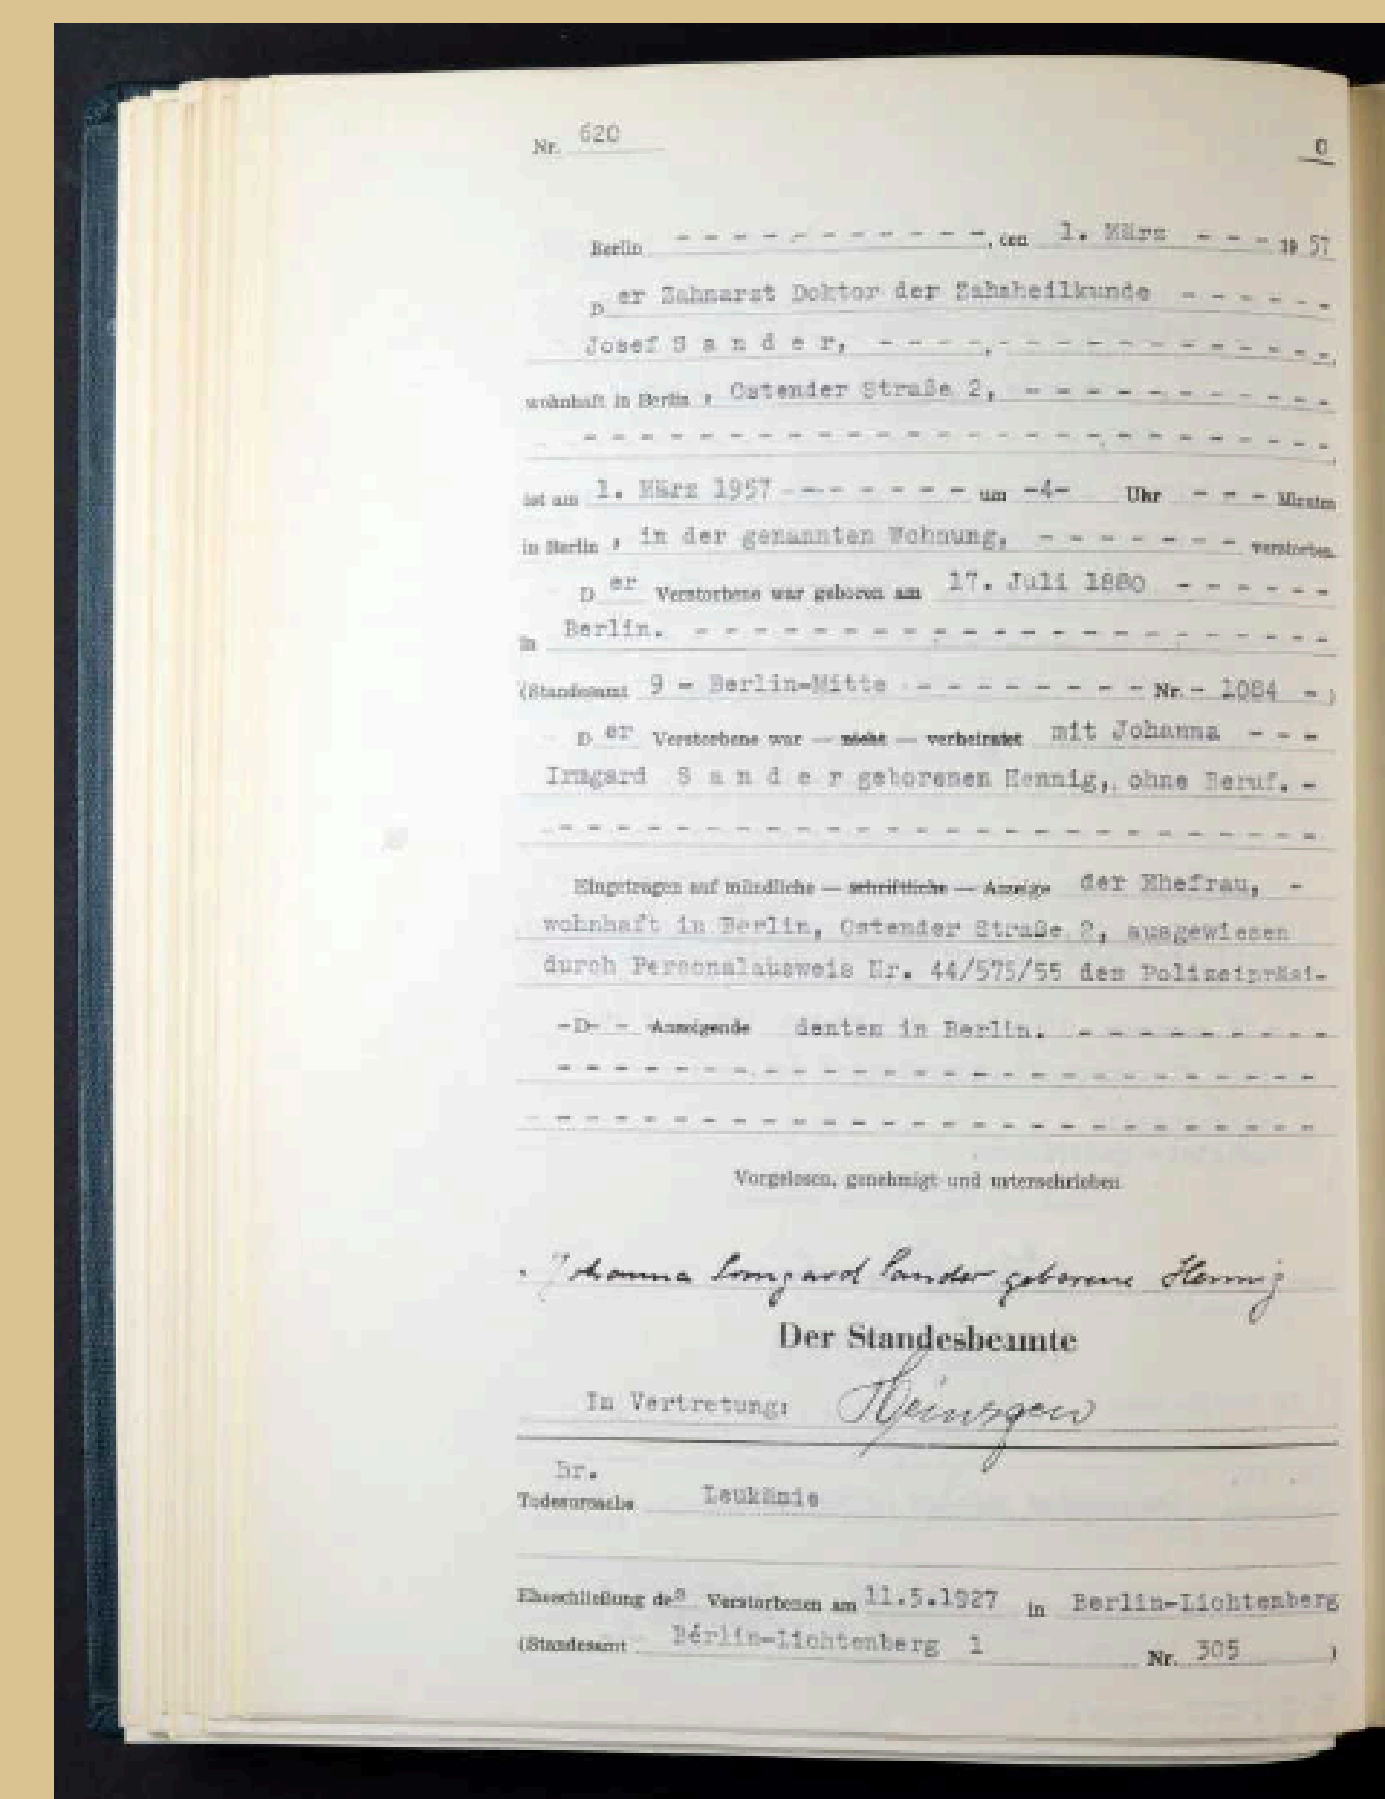 Nr. 620
C
Berlin - - - - - - - - - - -, den 1. März - - - 1957
D er Zahnarzt Doktor der Zahnheilkunde - - - - - -
Josef S a n d e r, - - - - - - - - - - - - - - - -
wohnhaft in Berlin, Ostender Straße 2, - - - - - - - - - - -
- - - - - - - - - - - - - - - - - - - - - - - - - -
ist am 1. März 1957 - - - - - - - - um -4- Uhr - - - Minuten
in Berlin, in der genannten Wohnung, - - - - - - - verstorben.
D er Verstorbene war geboren am 17. Juli 1880 - - - - - -
in Berlin. - - - - - - - - - - - - - - - - - - - - - -
(Standesamt 9 - Berlin-Mitte - - - - - - - - - Nr. - 1084 - )
D er Verstorbene war — nicht — verheiratet mit Johanna - - -
Irmgard S a n d e r geborenen Hennig, ohne Beruf. -
- - - - - - - - - - - - - - - - - - - - - - - - - - -
Eingetragen auf mündliche — schriftliche — Anzeige der Ehefrau, -
wohnhaft in Berlin, Ostender Straße 2, ausgewiesen
durch Personalausweis Nr. 44/575/55 des Polizeipräsi-
-D- - Anzeigende denten in Berlin. - - - - - - - - -
- - - - - - - - - - - - - - - - - - - - - - - - - - -
- - - - - - - - - - - - - - - - - - - - - - - - - - - -
Vorgelesen, genehmigt und unterschrieben
Johanna Irmgard Sander geborene Hennig
Der Standesbeamte
In Vertretung:
br.
Todesursache Leukämie
Eheschließung des Verstorbenen am 11.5.1927 in Berlin-Lichtenberg
(Standesamt Berlin-Lichtenberg 1 Nr. 305 )